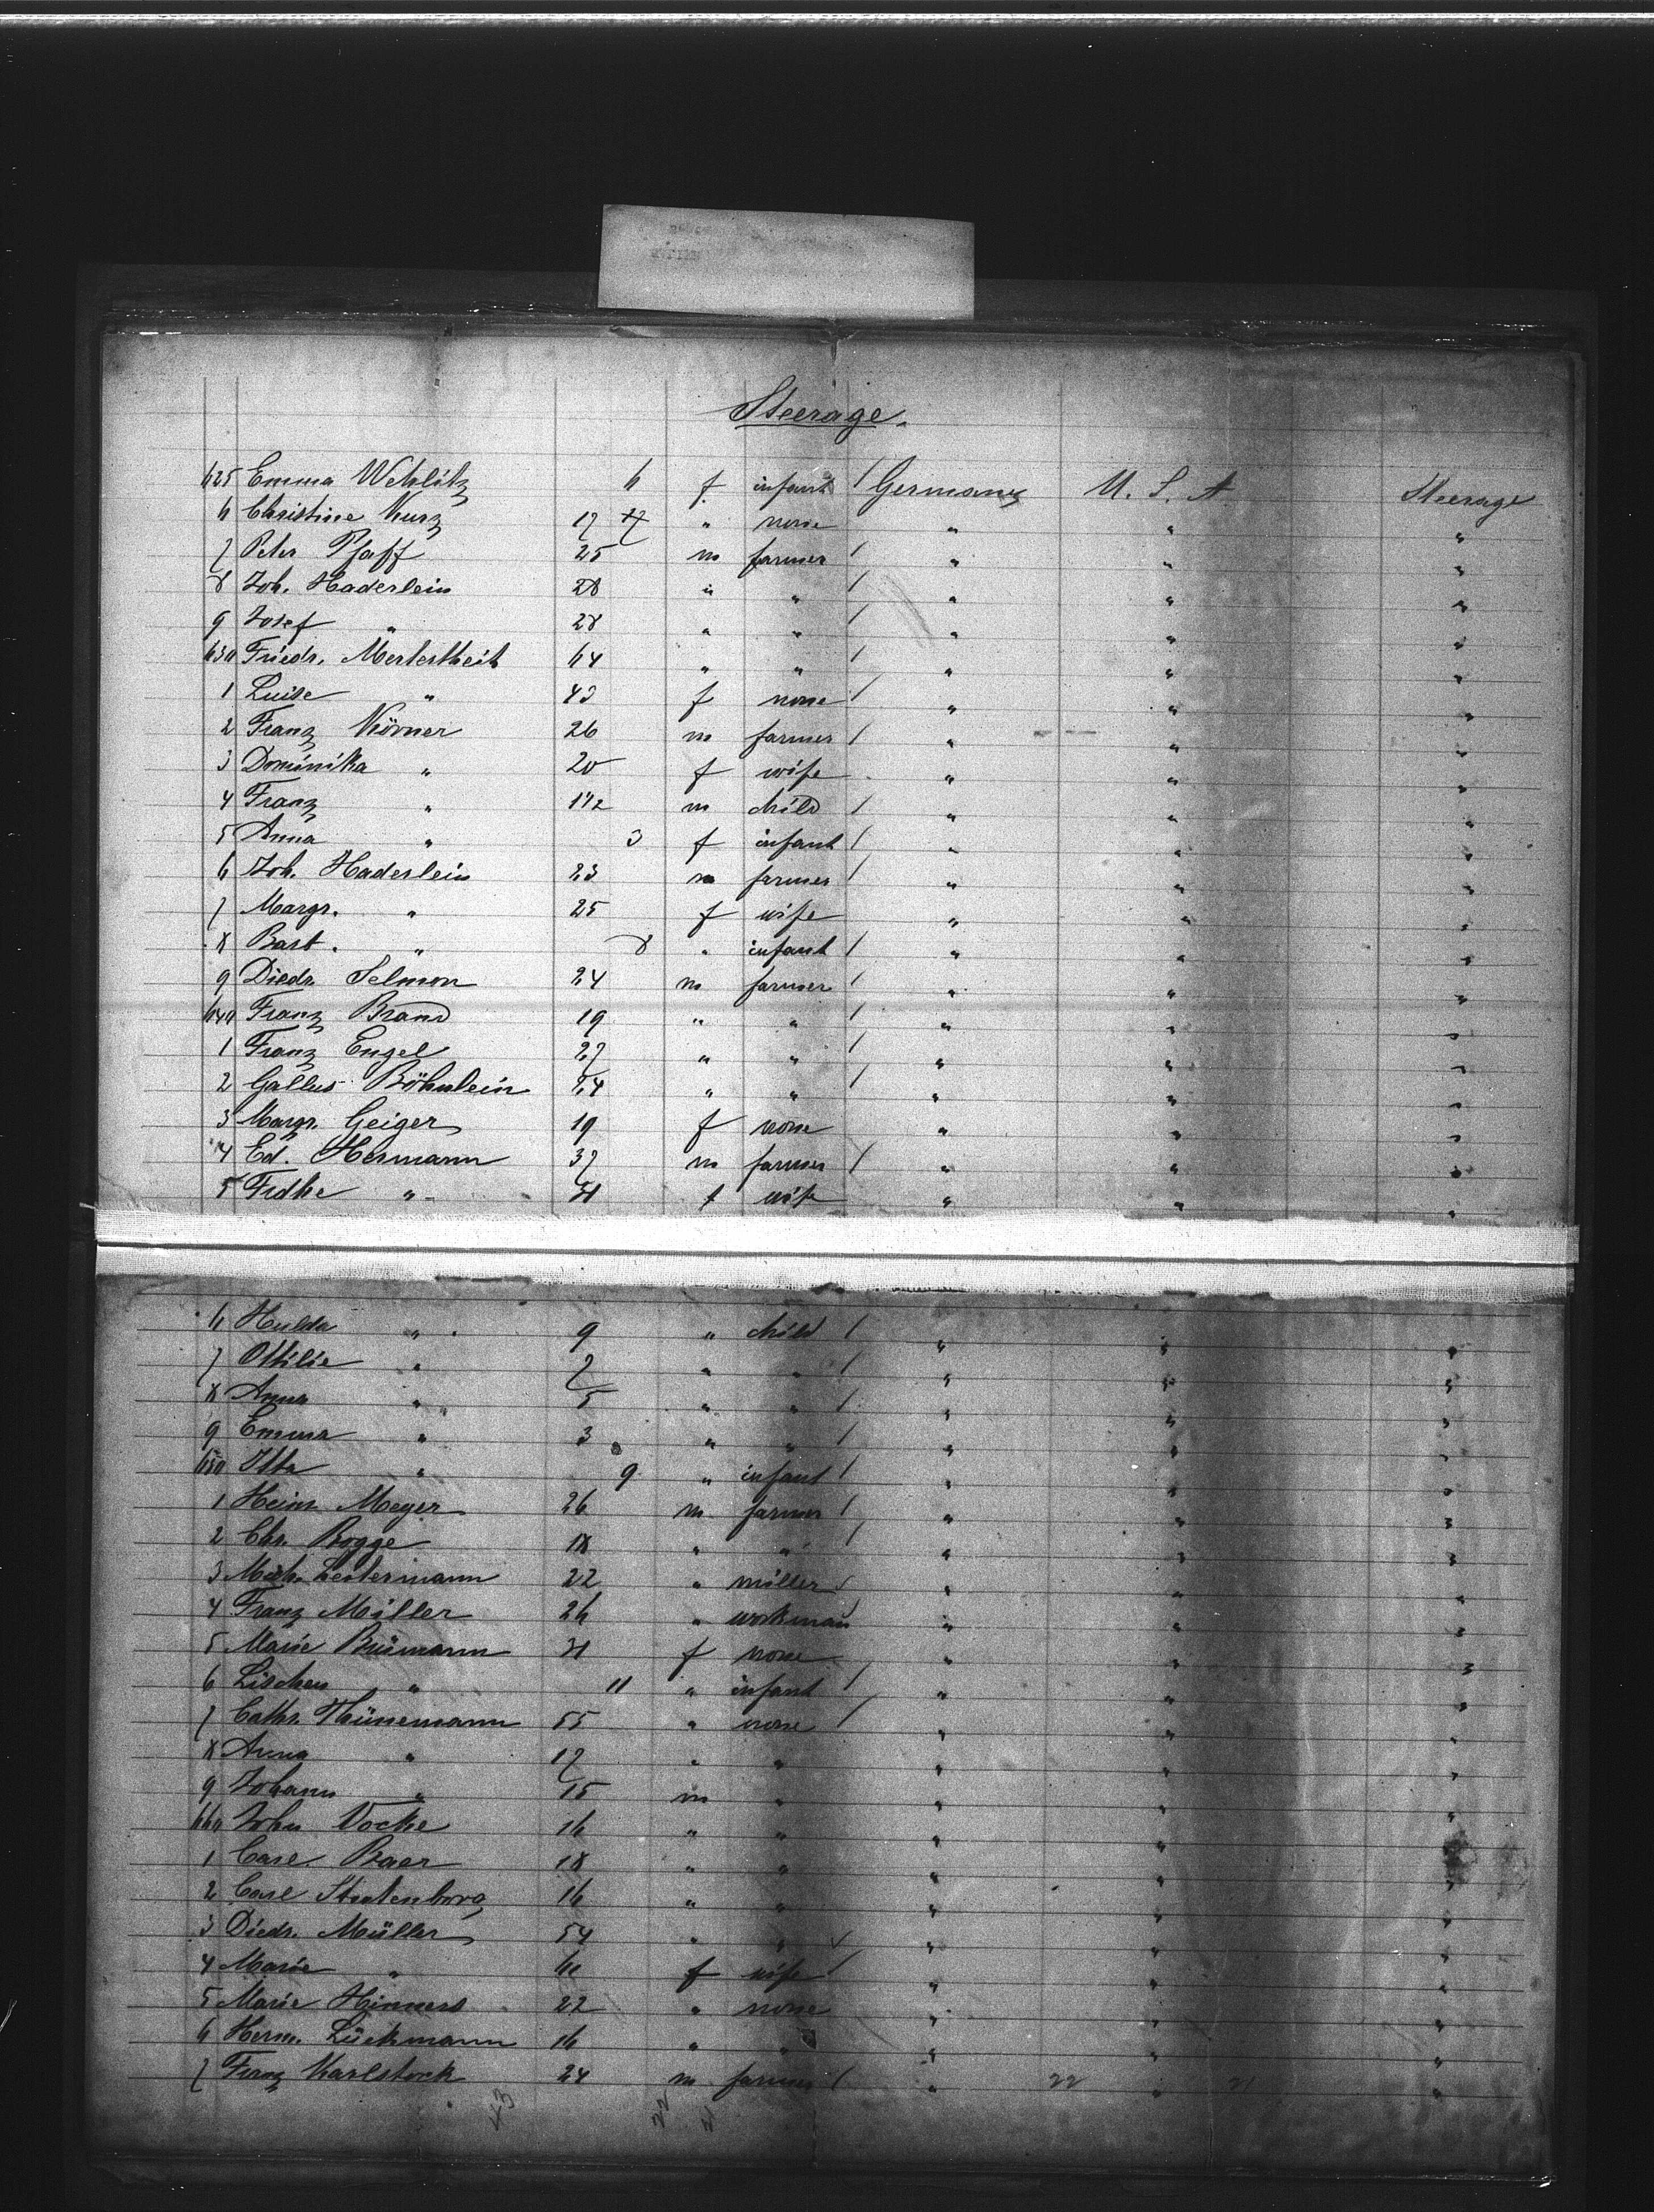 Steerage.
625 Emma Wehlitz 6 f infant / Germany U. S. A Steerage
6 Christine Kurz 17 " none " " "
7 Peter Pfaff 25 m farmer / " " "
8 Joh. Haderlein 28 " " / " " "
9 Josef " 28 " " / " " "
630 Friedr. Mertesheit 64 " " / " " "
1 Luise " 43 f none / " " "
2 Franz Körner 26 m farmer / " " "
3 Dominika " 20 f wife " " "
4 Franz " 1 1/2 m child / " " "
5 Anna " 3 f infant / " " "
6 Joh. Haderlein 23 m farmer / " " "
7 Margr. " 25 f wife " " "
8 Barb. " 8 " infant / " " "
9 Diedr. Selmon 24 m farmer / " " "
640 Franz Brand 19 " " / " " "
1 Franz Engel 27 " " / " " "
2 Gallus Böhnlein 54 " " / " " "
3 Margr. Geiger 19 f none " " "
4 Ed. Hermann 37 m farmer / " " "
5 Fridke " 31 f wife " " "
6 Hulda " 9 " child / " " "
7 Ottilie " 7 " " / " " "
8 Anna " 5 " " / " " "
9 Emma " 3 " " / " " "
650 Itta " 9 " infant / " " "
1 Heinr. Meyer 26 m farmer / " " "
2 Chr. Rogge 18 " " / " " "
3 Mich. Lestermann 22 " miller / " " "
4 Franz Miller 26 " workman " " "
5 Marie Brümann 31 f none " " "
6 Lischen " 11 " infant / " " "
7 Cathr. Thünemann 55 " none / " " "
8 Anna " 17 " " " " "
9 Johann " 15 m " " " "
660 John Vocke 16 " " " " "
1 Carl Baer 18 " " " " "
2 Carl Stratenborg 16 " " " " "
3 Diedr. Müller 54 " " / " " "
4 Marie " 60 f wife / " " "
5 Marie Hinners 22 " none " " "
6 Herm. Lückmann 16 " " " " "
7 Franz Karlstock 24 m farmer / " 22 " 21 "
43 22 21